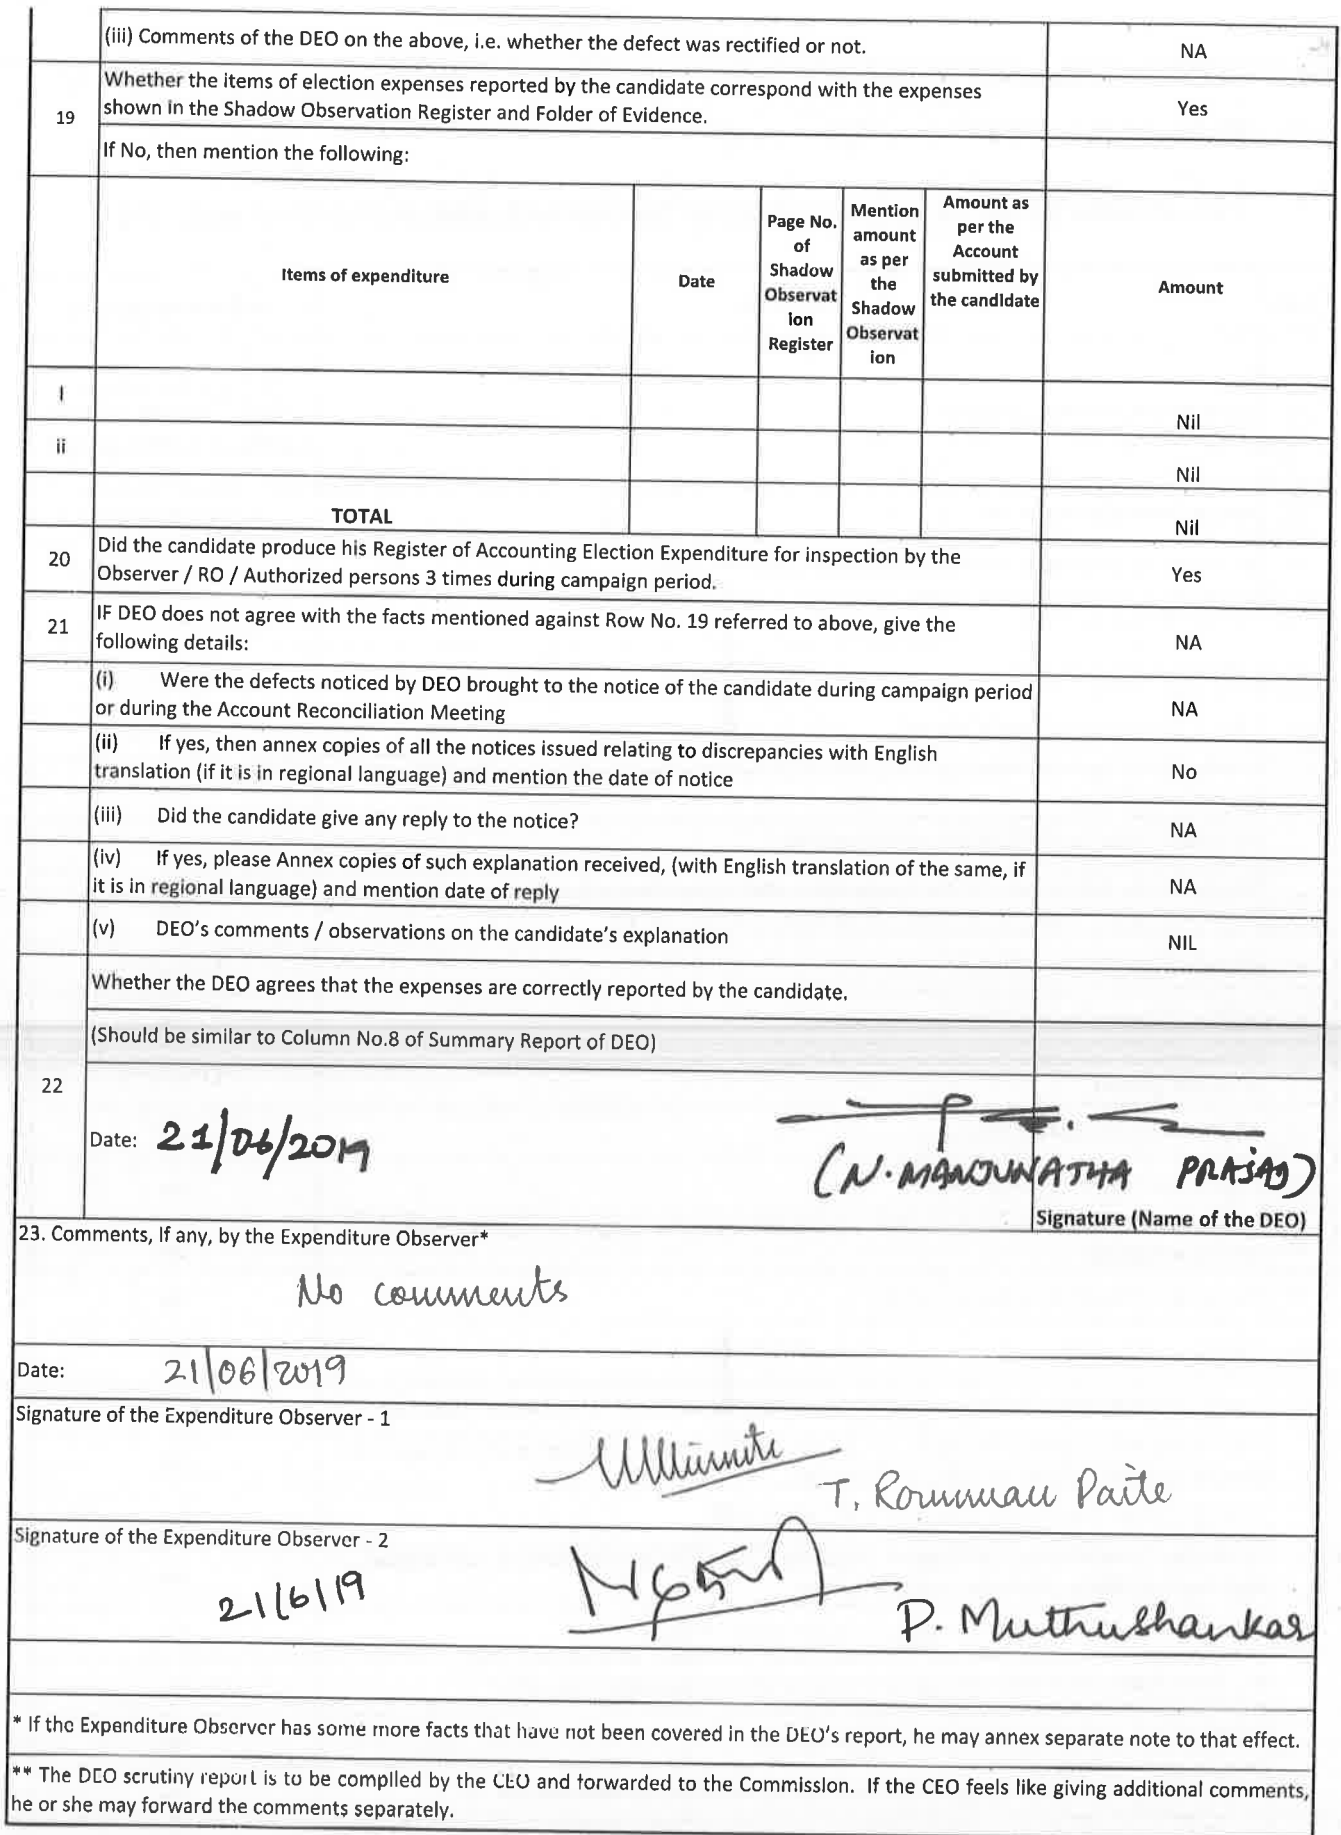 (iii) Comments of the DEO on the above, i.e. whether the defect was rectified or not. NA
19 Whether the items of election expenses reported by the candidate correspond with the expenses
shown in the Shadow Observation Register and Folder of Evidence. Yes
If No, then mention the following:
Items of expenditure
Date
Page No.
of
Shadow
Observat
ion
Register
Mention
amount
as per
the
Shadow
Observat
ion
Amount as
per the
Account
submitted by
the candidate
Amount
I Nil
ii Nil
TOTAL Nil
20 Did the candidate produce his Register of Accounting Election Expenditure for inspection by the
Observer / RO / Authorized persons 3 times during campaign period. Yes
21 IF DEO does not agree with the facts mentioned against Row No. 19 referred to above, give the
following details: NA
(i) Were the defects noticed by DEO brought to the notice of the candidate during campaign period
or during the Account Reconciliation Meeting NA
(ii) If yes, then annex copies of all the notices issued relating to discrepancies with English
translation (if it is in regional language) and mention the date of notice No
(iii) Did the candidate give any reply to the notice? NA
(iv) If yes, please Annex copies of such explanation received, (with English translation of the same, if
it is in regional language) and mention date of reply NA
(v) DEO's comments / observations on the candidate's explanation NIL
Whether the DEO agrees that the expenses are correctly reported by the candidate.
(Should be similar to Column No.8 of Summary Report of DEO)
22
Date: 21/06/2019
(N. MANJUNATHA PRASAD)
Signature (Name of the DEO)
23. Comments, If any, by the Expenditure Observer*
No comments
Date: 21/06/2019
Signature of the Expenditure Observer - 1
T. Roumuan Paite
Signature of the Expenditure Observer - 2
21/6/19
P. Muthushankar
* If the Expenditure Observer has some more facts that have not been covered in the DEO's report, he may annex separate note to that effect.
** The DEO scrutiny report is to be compiled by the CEO and forwarded to the Commission. If the CEO feels like giving additional comments,
he or she may forward the comments separately.